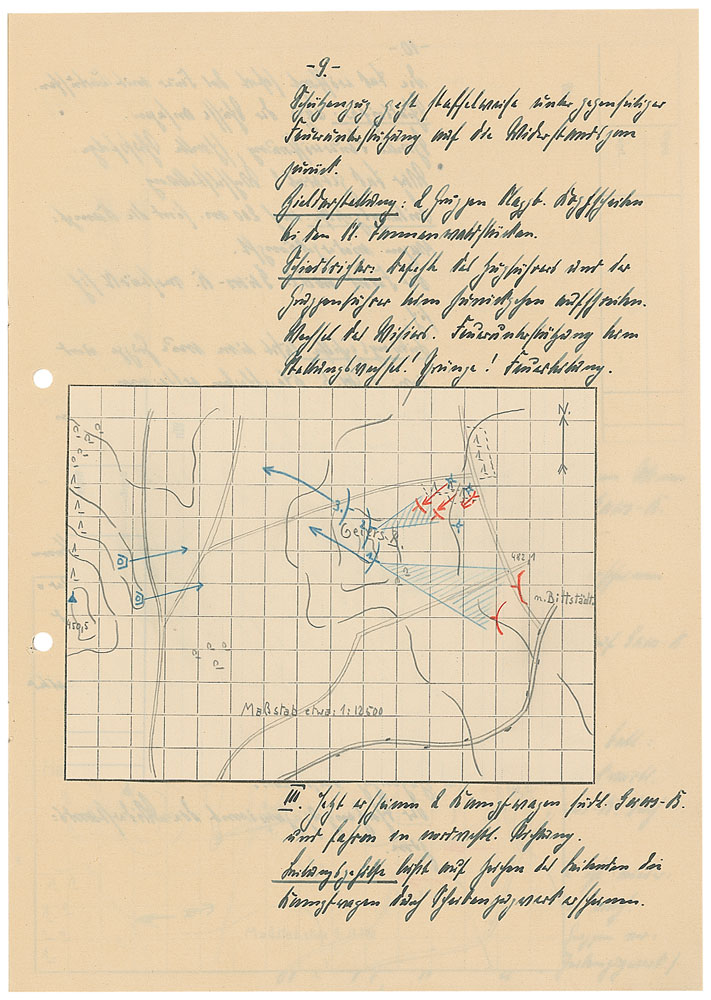 -9.-
Schützenzug geht staffelweise unter gegenseitiger
Feuerunterstützung auf die Widerstandszone
zurück.
Zieldarstellung: 2 Gruppen Klappb. Kopfscheiben
bei den kl. Tannenwaldstücken.
Schiedsrichter: Befehle des Zugführers und der
Gruppenführer beim Zurückgehen aufschreiben.
Wechsel der Visiere. Feuerunterstützung beim
Stellungswechsel! Gründe! Feuerleitung.
N.
3.
2.
Geiers-B.
1.
482,1
n. Bittstädt.
450,5
Maßstab etwa: 1:12500
III. Jetzt erscheinen 2 Kampfwagen südl. Geiers-B.
und fahren in nordwestl. Richtung.
Leitungsgehilfe läßt auf Zeichen des Leitenden die
Kampfwagen durch Scheibenzugwerk erscheinen.